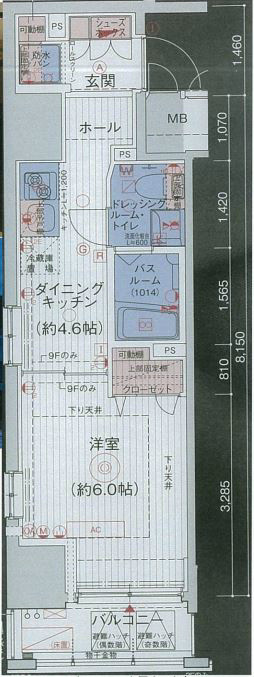 可動棚
PS
シューズ
ボックス
防水
パン
玄関
A
ホール
MB
PS
キッチンL=1,200
ドレッシング
ルーム・
トイレ
洗面化粧台
L=600
冷蔵庫
置場
G
R
バス
ルーム
(1014)
ダイニング
キッチン
(約4.6帖)
可動棚
PS
9Fのみ
上部固定棚
クローゼット
9Fのみ
下り天井
洋室
(約6.0帖)
下り天井
AC
バルコニー
避難ハッチ
(偶数階)
避難ハッチ
(奇数階)
(床置)
物干金物
1,460
1,070
1,420
1,565
810
3,285
8,150